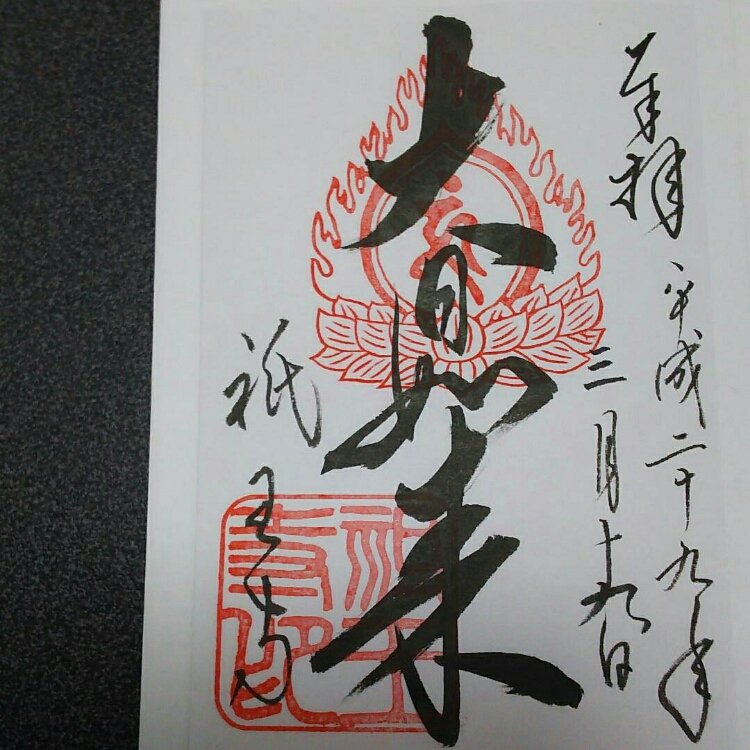 奉拝
平成二十九年
三月十九日
大日如来
祇王寺